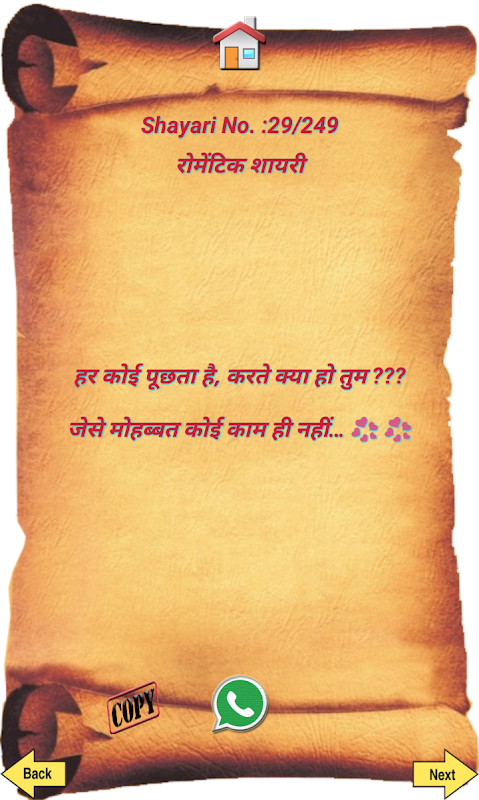 Shayari No. :29/249
रोमेंटिक शायरी
हर कोई पूछता है, करते क्या हो तुम ???
जेसे मोहब्बत कोई काम ही नहीं... 💞 💞
COPY
Back
Next